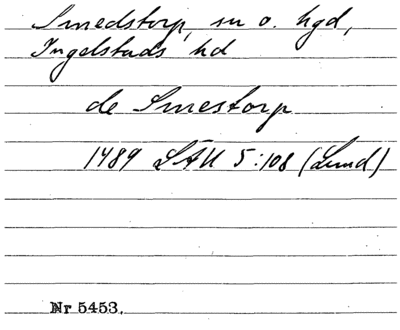 Smedstorp, sn o. hgd,
Ingelstads hd
de Smestorp
1489 LÄU 5:108 (Lund)
Nr 5453.